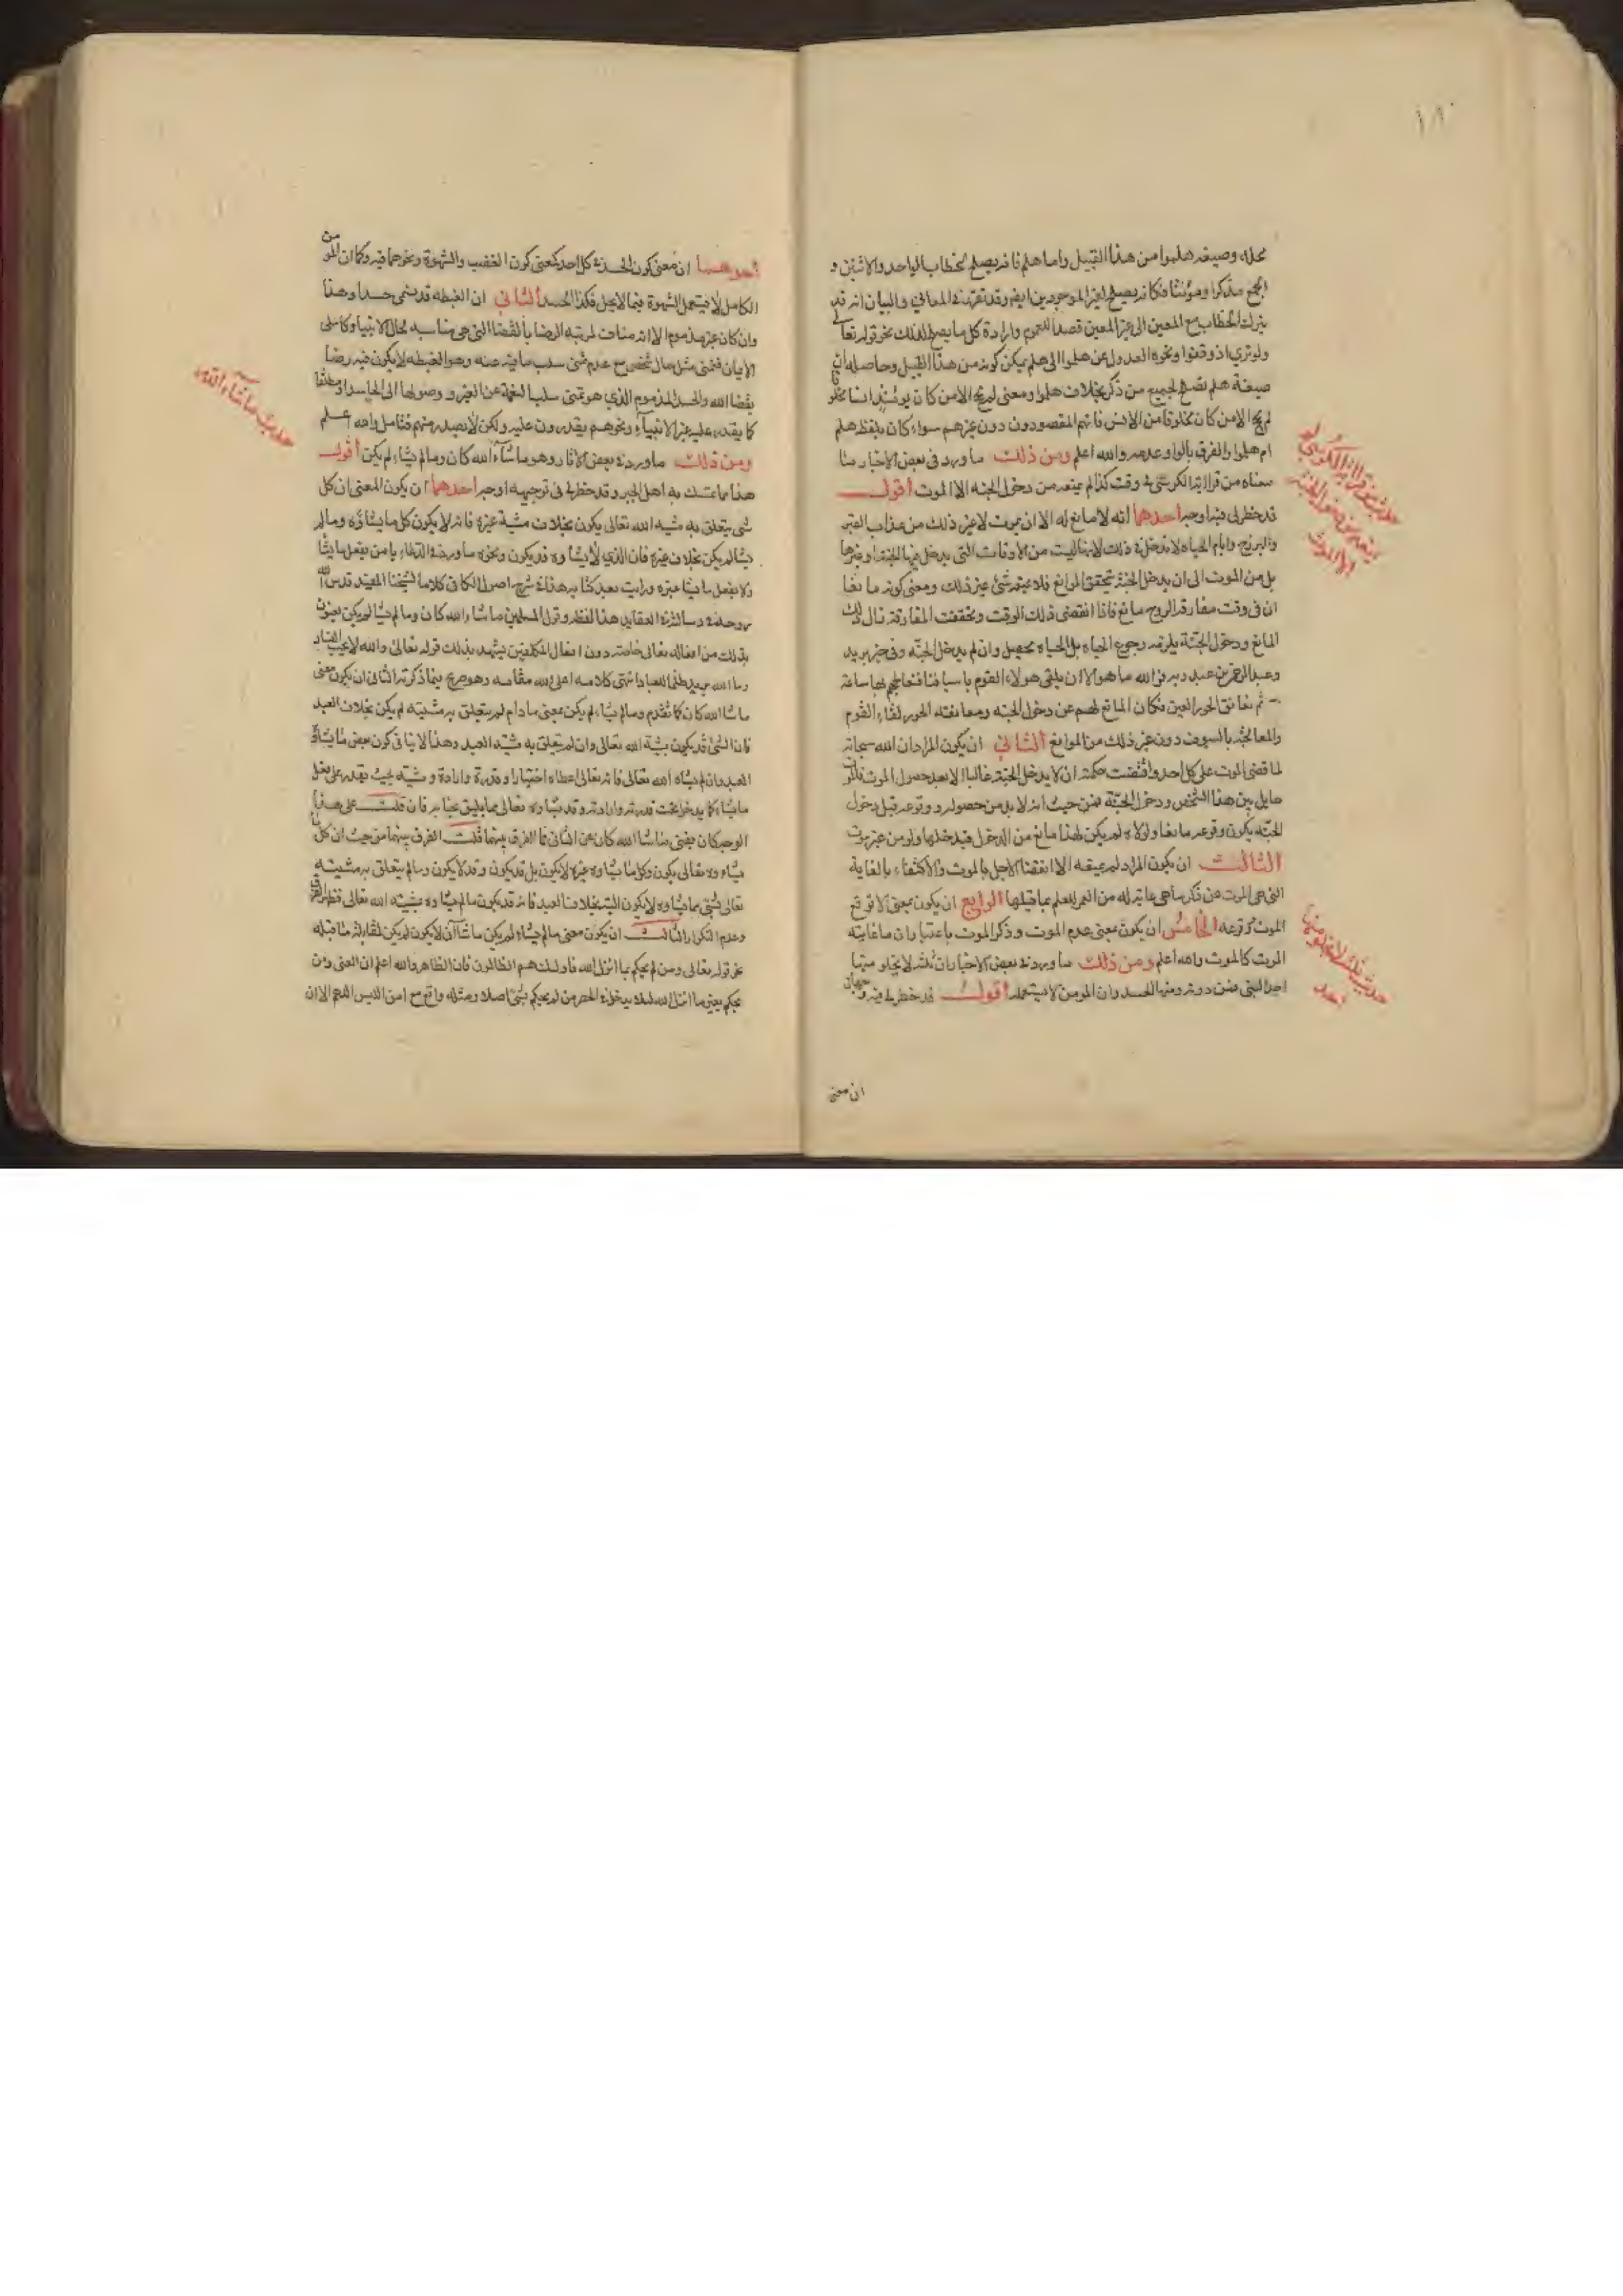 ١٨٠
محله وصيغه هلموا من هذا القبيل واما هلم فانه يصلح لخطاب الواحد والاثنين و
الجمع مذكرا ومؤنثا فكانه يصلح لغير الموجودين ايضا وقد تقرر في المعاني والبيان انه قد
يترك الخطاب مع المعين الى غير المعين قصدا للعموم وارادة كل ما يصلح لذلك نحو قوله تعالى
ولو ترى اذ وقفوا ونحوه العدول عن هلموا الى هلم يمكن كونه من هذا القبيل وحاصله ان
صيغة هلم تصلح لجميع من ذكر بخلاف هلموا ومعنى لم يحج الا من كان يومئذ انسا مخلوقا
لم يحج الا من كان مخلوقا من الانس فانهم المقصودون دون غيرهم سواء كان بلفظ هلم
ام هلموا والفرق بالواو وعدمه والله اعلم ومن ذلك ما ورد في بعض الاخبار مما
معناه من قرا اية الكرسي في وقت كذا لم يمنعه من دخول الجنة الا الموت اقول
قد خطر لي فيه اوجه احدها انه لا مانع له الا ان يموت لا غير ذلك من عذاب القبر
والبرزخ وايام الحياه لا تدخل في ذلك لانها ليست من الاوقات التي يدخل فيها الجنة او غيرها
بل من الموت الى ان يدخل الجنة تحقق الموانع فلا يمنعه شئ غير ذلك ومعنى كونه مانعا
ان في وقت مفارقة الروح مانع فاذا انقضى ذلك الوقت وتحققت المفارقة زال ذلك
المانع ودخول الجنة يلزمه رجوع الحياه بل الحياه تحصل وان لم يدخل الجنة وفي خبر برير
وعبد الرحمن بن عبد ربه فوالله ما هو الا ان يلقى هولاء القوم باسيافنا نعالجهم بها ساعة
ثم نعانق الحور العين فكان المانع لهم عن دخول الجنه ومعانقه الحور لقاء القوم
والمعالجه بالسيوف دون غير ذلك من الموانع الثاني ان يكون المراد ان الله سبحانه
لما قضى الموت على كل احد واقتضت حكمته ان لا يدخل الجنة غالبا الا بعد حصول الموت فالموت
حايل بين هذا الشخص ودخول الجنة فمن حيث انه لا بد من حصوله ووقوعه قبل دخول
الجنه يكون وقوعه مانعا ولولاه لم يكن لهذا مانع من الدخول فيدخلها ولو من غير موت
الثالث ان يكون المراد لم يمنعه الا انقضاء الاجل بالموت والاكتفاء بالغاية
التي هي الموت عن ذكر ما هي غاية له من العمر للعلم بما قبلها الرابع ان يكون بمعنى الا توقع
الموت وتوقعه الخامس ان يكون بمعنى عدم الموت وذكر الموت باعتبار ان ما غايته
الموت كالموت والله اعلم ومن ذلك ما ورد في بعض الاخبار ان ثلثة لا يخلو منها
احد النبي فمن دونه ومنها الحسد وان المومن لا يستعمله اقول قد خطر لي فيه وجهان
ان معنى
حديث من قرا اية الكرسي لم
يمنعه من دخول الجنة
الا الموت
حديث ثلاث لا يخلو منها
احد
احدهما ان معنى كون الحسد في كل احد كمعنى كون الغضب والشهوة ونحوهما فيه وكما ان المومن
الكامل لا يستعمل الشهوة فيما لا يحل فكذا الحسد الثاني ان الغبطه قد تسمى حسدا وهذا
وان كان غير مذموم الا انه مناف لمرتبة الرضا بالقضا التي هي مناسبه لحال الانبيا وكاملي
الايمان فتمنى مثل حال شخص مع عدم تمني سلب ما فيه عنه وهو الغبطه لا يكون فيه رضا
بقضا الله والحسد المذموم الذي هو تمنى سلب النعمة عن الغير ووصولها الى الحاسد او مطلقا
كما يقدر عليه غير الانبياء ونحوهم يقدرون عليه ولكن لا يصدر منهم فتامل والله اعلم
ومن ذلك ما ورد في بعض الاثار وهو ما شآء الله كان وما لم يشاء لم يكن اقول
هذا مما تمسك به اهل الجبر وقد خطر لي في توجيهه اوجه احدها ان يكون المعنى ان كل
شئ يتعلق به مشية الله تعالى يكون بخلاف مشية غيره فانه لا يكون كل ما يشاؤه وما لم
يشا لم يكن بخلاف غيره فان الذي لا يشاوه قد يكون ونحوه ما ورد في الدعاء يا من يفعل ما يشا
ولا يفعل ما يشا غيره ورايت بعد كتابه هذا في شرح اصول الكافي كلاما لشيخنا المفيد قدس الله
روحه في رسالته في العقايد هذا لفظه وقول المسلمين ما شاء الله كان وما لم يشا لم يكن يعنون
بذلك من افعاله تعالى خاصة دون افعال المكلفين يشهد بذلك قوله تعالى والله لا يحب الفساد
وما الله يريد ظلما للعباد انتهى كلامه اعلى الله مقامه وهو صريح فيما ذكرته الثاني ان يكون معنى
ما شا الله كان كما تقدم وما لم يشاء لم يكن بمعنى ما دام لم يتعلق به مشيته لم يكن بخلاف العبد
فان الشئ قد يكون بمشية الله تعالى وان لم يتعلق به مشية العبد وهذا لا ينافي كون بعض ما يشاؤه
العبد وان لم يشاه الله تعالى فانه تعالى اعطاه اختيارا وقدرة وارادة ومشيه بحيث يقدر على فعل
ما يشاء كما يدخل تحت قدرته وارادته وقد يشاوه تعالى بما يليق بجنابه فان قلت على هذا
الوجه كان معنى ما شا الله كان عن الثاني فما الفرق بينهما قلت الفرق بينهما من حيث ان كل ما
يشاءه تعالى يكون وكل ما يشاوه غيره لا يكون بل قد يكون وقد لا يكون وما لم يتعلق به مشيته
تعالى شئ مما يشاوه لا يكون البته بخلاف العبد فانه قد يكون ما لم يشاوه بمشية الله تعالى فظهر الفرق
وعدم التكرار الثالث ان يكون معنى ما لم يشاء لم يكن ما شاء ان لا يكون لم يكن لمقابلة ما قبله
نحو قوله تعالى ومن لم يحكم بما انزل الله فاولئك هم الظالمون فان الظاهر والله اعلم ان المعنى ومن
يحكم بغير ما انزل الله لئلا يدخل في الحصر من لم يحكم بشئ اصلا ومثله واقع مع امن اللبس اللهم الا ان
حديث ما شاء الله